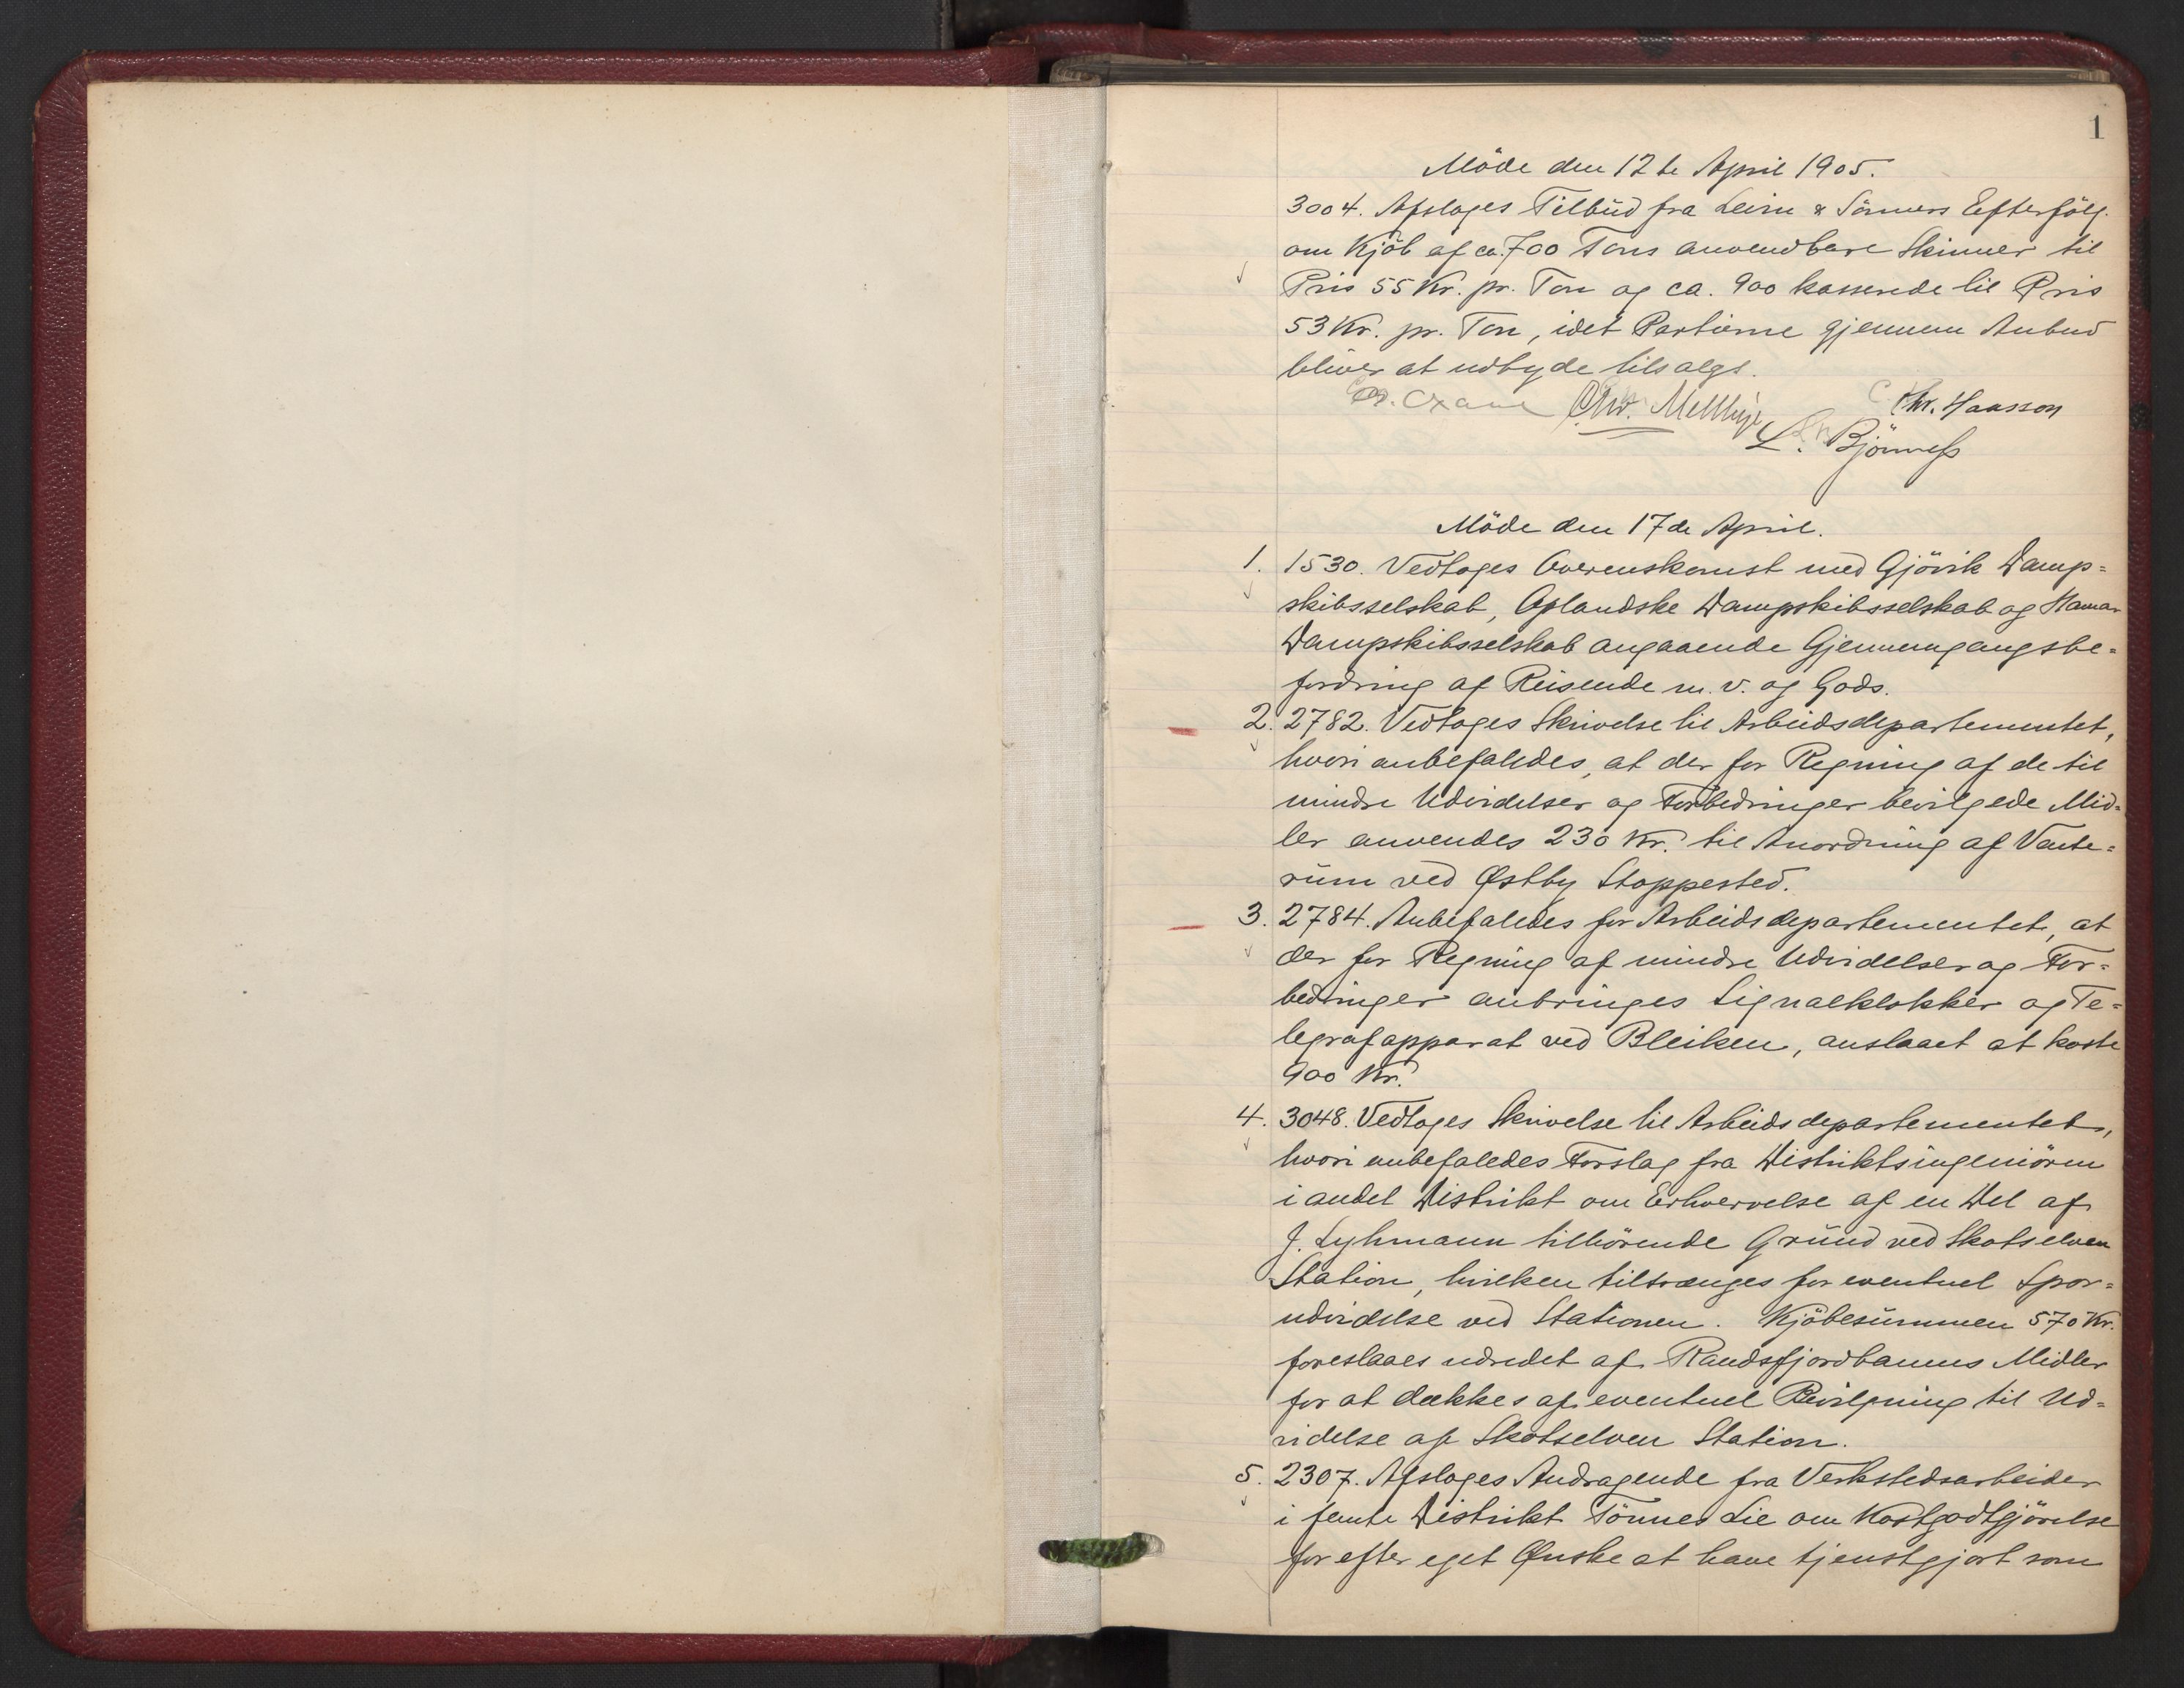 1
Möde den 12te April 1905.
3004. Afsloges Tilbud fra Leirn & Sönners Efterfölg.
om Kjöb af ca. 700 Tons anvendbare Skinner til
Pris 55 Kr. pr. Ton og ca. 900 kasserede til Pris
53 Kr. pr. Ton, idet Partierne gjennem Anbud
bliver at udbyde tilsalgs.
Chr. Hansson
L. Björness
Möde den 17de April.
1. 1530. Vedtoges Overenskomst med Gjövik Damp=
skibsselskab, Oplandske Dampskibsselskab og Hamar
Dampskibsselskab angaaende Gjennemgangsbe=
fordring af Reisende m. v. og Gods.
2. 2782. Vedtoges Skrivelse til Arbeidsdepartementet,
hvori anbefaledes, at der for Regning af de til
mindre Udvidelser og Forbedringer bevilgede Mid=
ler anvendes 230 Kr. til Anordning af Vente=
rum ved Østby Stoppested.
3. 2784. Anbefaledes for Arbeidsdepartementet, at
der for Regning af mindre Udvidelser og For=
bedringer anbringes Signalklokker og Te=
legrafapparat ved Bleiken, anslaaet at koste
900 Kr.
4. 3048. Vedtoges Skrivelse til Arbeidsdepartementet,
hvori anbefaledes Forslag fra Distriktsingeniören
i andet Distrikt om Erhvervelse af en Del af
J. Lyhmann tilhörende Grund ved Skotselven
Station, hvilken tiltrænges for eventuel Spor=
udvidelse ved Stationen. Kjöbesummen 570 Kr.
foreslaaes udredet af Randsfjordbanens Midler
for at dækkes af eventuel Bevilgning til Ud=
videlse af Skotselven Station.
5. 2307. Afsloges Andragende fra Verkstedsarbeider
i femte Distrikt Tönnes Lie om Kostgodtgjörelse
for efter eget Ønske at have tjenstgjort som